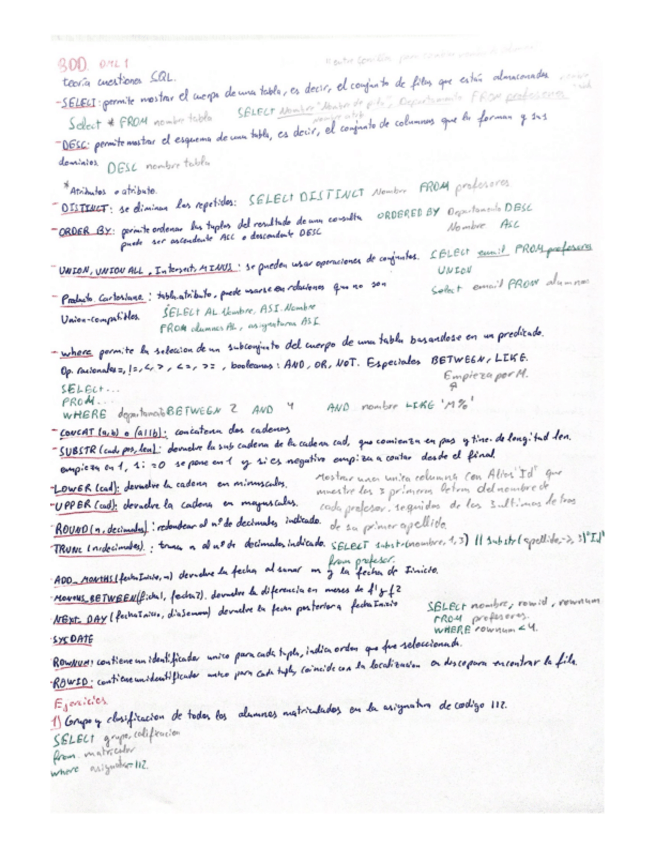 BDD. DML 1
teoría cuestiones SQL.
-SELECT: permite mostrar el cuerpo de una tabla, es decir, el conjunto de filas que están almacenadas
Select * FROM nombre tabla SELECT Nombre "Nombre de Pila", Departamento FROM profesores
-DESC: permite mostrar el esquema de una tabla, es decir, el conjunto de columnas que la forman y sus
dominios. DESC nombre tabla
* Atributos o atributo.
-DISTINCT: se eliminan los repetidos: SELECT DISTINCT Nombre FROM profesores
-ORDER BY: permite ordenar las tuplas del resultado de una consulta ORDERED BY Departamento DESC
puede ser ascendente ASC o descendente DESC Nombre ASC
-UNION, UNION ALL, Intersect, MINUS: se pueden usar operaciones de conjuntos. SELECT email FROM profesores
UNION
Select email FROM alumnos
-Producto Cartesiano: tabla.atributo, puede usarse en relaciones que no son
Union-compatibles SELECT AL.Nombre, ASI.Nombre
FROM alumnos AL, asignaturas ASI
-where permite la selección de un subconjunto del cuerpo de una tabla basandose en un predicado.
Op. racionales =, !=, <, >, <=, >=, booleanos: AND, OR, NOT. Especiales BETWEEN, LIKE.
Empieza por M.
SELECT...
FROM...
WHERE departamento BETWEEN 2 AND 4 AND nombre LIKE 'M%'
-CONCAT (a,b) o (a||b): concatena dos cadenas
-SUBSTR (cad, pos, len): devuelve la sub cadena de la cadena cad, que comienza en pos y tiene de longitud len.
empieza en 1, si =0 se pone en 1 y si es negativo empieza a contar desde el final
-LOWER (cad): devuelve la cadena en minusculas.
-UPPER (cad): devuelve la cadena en mayusculas.
Mostrar una unica columna con Alias 'Id' que
muestre las 3 primeras letras del nombre de
cada profesor, seguidas de las 3 ultimas letras
de su primer apellido.
-ROUND (n, decimales): redondear al nº de decimales indicado.
TRUNC (n, decimales): trunca n al nº de decimales indicado. SELECT substr(nombre, 1, 3) || substr(apellido, -3, 3) "Id"
from profesor.
ADD_MONTHS (fechaInicio, n) devuelve la fecha al sumar n y la fecha de Iinicio.
MONTHS_BETWEEN (fecha1, fecha2). devuelve la diferencia en meses de f1 y f2
NEXT_DAY (fechaInicio, diaSemana) devuelve la fecha posterior a fechaInicio
SYSDATE
SELECT nombre, rowid, rownum
FROM profesores
WHERE rownum < 4.
ROWNUM: contiene un identificador unico para cada tupla, indica orden que fue seleccionada.
-ROWID: contiene un identificador unico para cada tupla, coincide con la localización en disco para encontrar la fila.
Ejercicios
1) Grupo y clasificación de todos los alumnos matriculados en la asignatura de codigo 112.
SELECT grupo, calificacion
from matricular
where asignatura=112